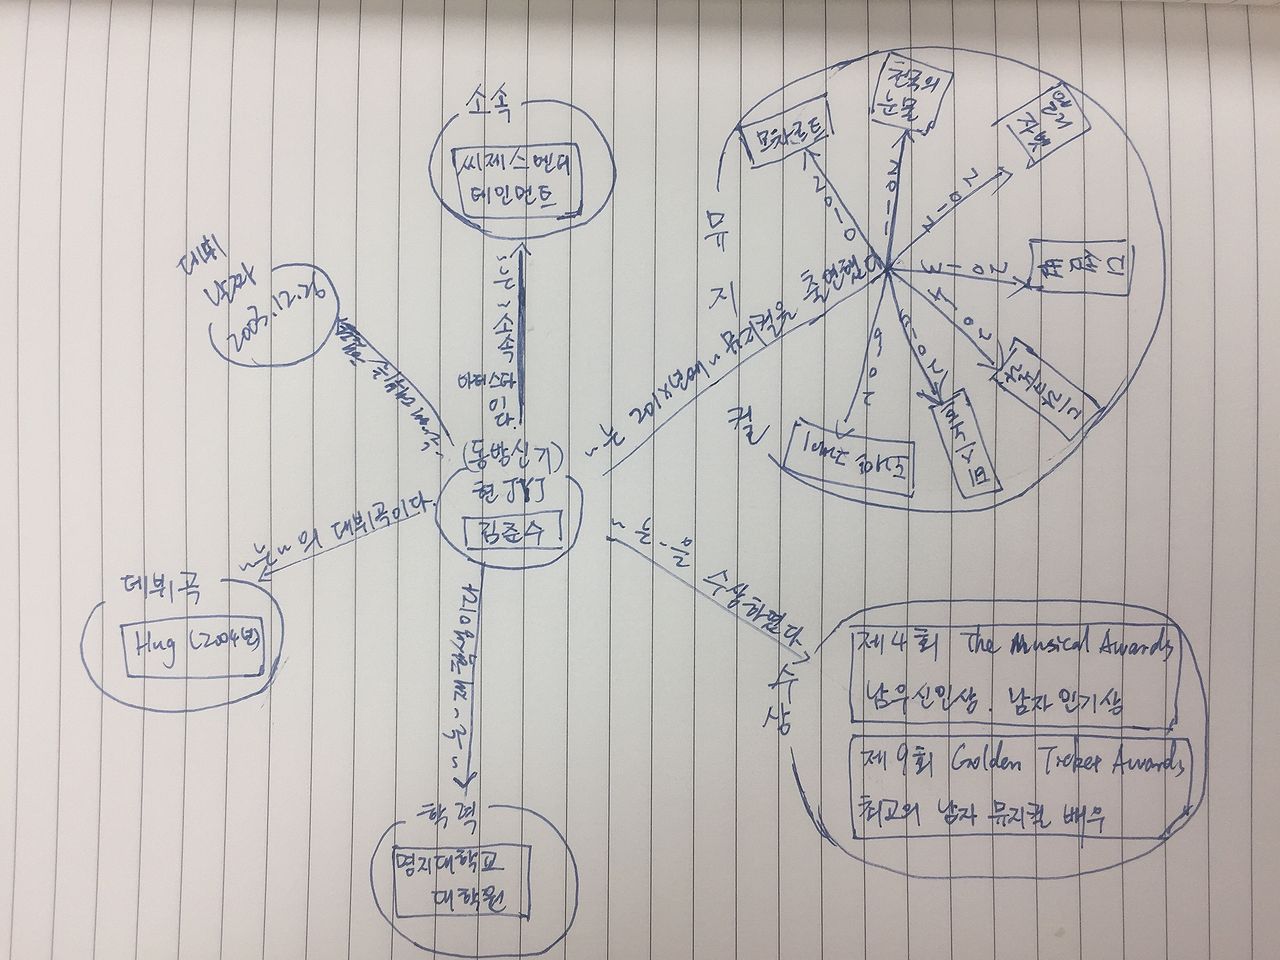 소속
씨제스엔터
테인먼트
~는 ~소속
아티스트
이다.
데뷔
날짜
2003.12.26
(동방신기)
현 JYJ
김준수
~는~의 데뷔곡이다.
데뷔곡
Hug (2004년)
학력
명지대학교
대학원
~는 201X년에 ~ 뮤지컬을 출연했다
뮤
지
컬
2010
모차르트
2011
천국의
눈물
2012
엘리
자벳
2013
디셈
버
2014
드라큘라
201
2016
도리안
~는 ~을 수상하였다
수
상
제4회 The Musical Awards
남우신인상. 남자인기상
제9회 Golden Ticket Awards
최고의 남자 뮤지컬 배우